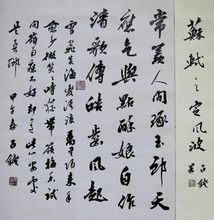 蘇軾之定風波
常羨人間琢玉郎天
應乞與點酥娘自作
清歌傳皓齒風起
雪飛炎海變清涼萬里歸來
顏愈少微笑笑時猶帶嶺梅香試
問嶺南應不好却道此心安處
是吾鄉 甲午春